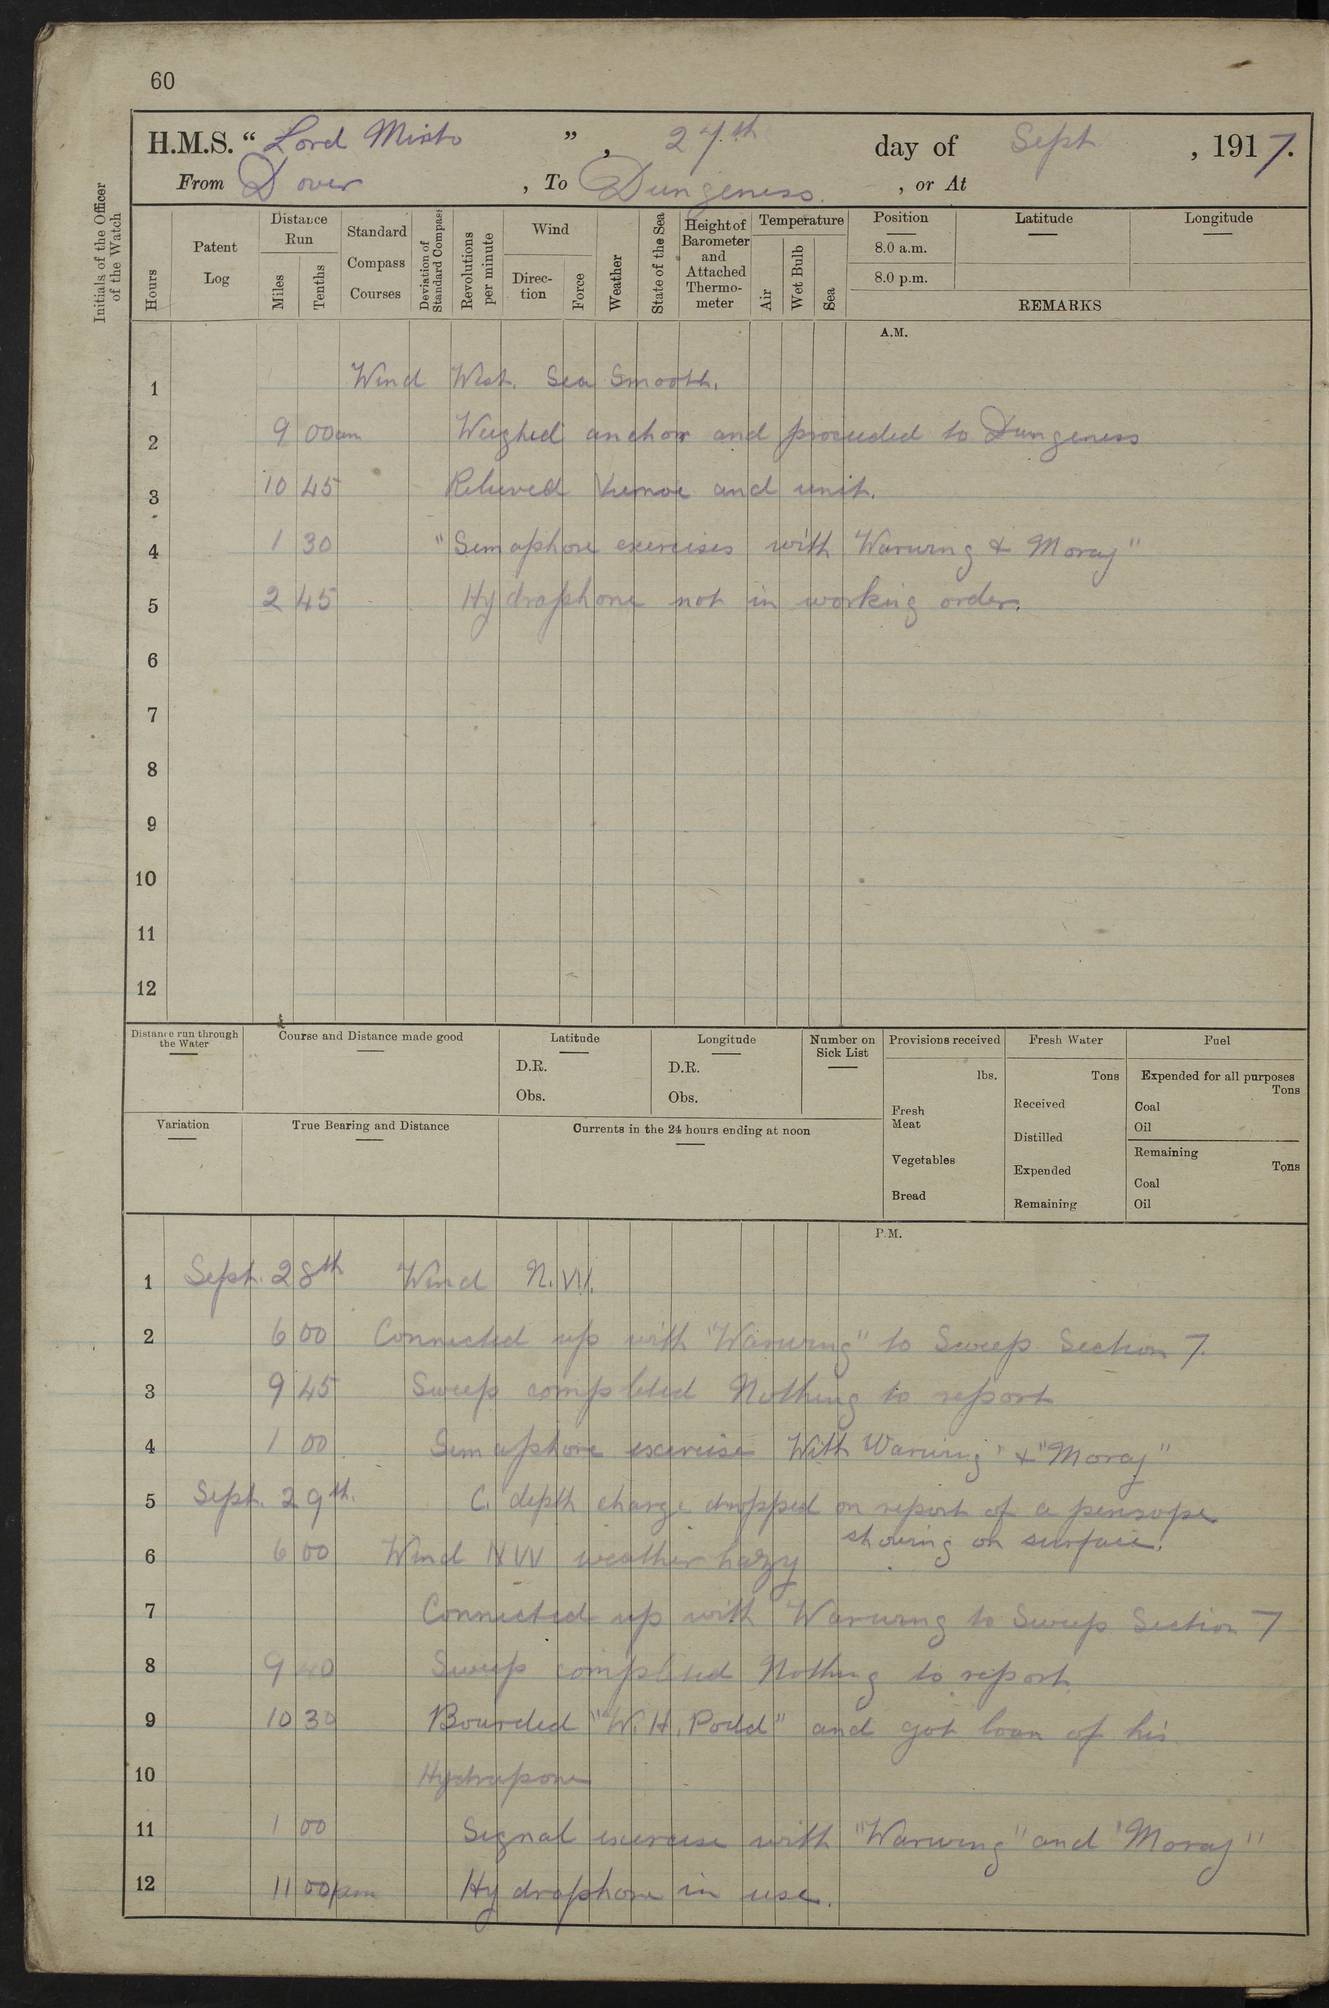 60
H.M.S. “ Lord Minto ” , 27.th day of Sept. , 1917.
From Dover , To Dungeness. , or At
Initials of the Officer of the Watch
Hours
Patent Log
Distance Run
Miles
Tenths
Standard Compass Courses
Deviation of Standard Compass
Revolutions per minute
Wind
Direction
Force
Weather
State of the Sea
Height of Barometer and Attached Thermometer
Temperature
Air
Wet Bulb
Sea
Position
8.0 a.m.
8.0 p.m.
Latitude
Longitude
REMARKS
A.M.
1 Wind West. Sea Smooth.
2 9 00am Weighed anchor and proceeded to Dungeness
3 10 45 Relieved and unit.
4 1 30 "Semaphore exercises with Warwing & Moray"
5 2 45 Hydraphone not in working order.
6
7
8
9
10
11
12
Distance run through the Water
Course and Distance made good
Latitude
D.R.
Obs.
Longitude
D.R.
Obs.
Number on Sick List
Provisions received
lbs.
Fresh Meat
Vegetables
Bread
Fresh Water
Tons
Received
Distilled
Expended
Remaining
Fuel
Expended for all purposes
Tons
Coal
Oil
Remaining
Tons
Coal
Oil
Variation
True Bearing and Distance
Currents in the 24 hours ending at noon
P.M.
1 Sept. 28th Wind N.W.
2 6 00 Connected up with "Warwing" to Sweep Section 7.
3 9 45 Sweep completed Nothing to report
4 1 00 Semaphore exercise With Warwing" & "Moray"
5 Sept. 29th. C. depth charge dropped on report of a periscope
showing on surface.
6 6 00 Wind NW weather hazy
7 Connected up with Warwing to Sweep Section 7
8 9 40 Sweep completed Nothing to report.
9 10 30 Bourded "W.H. Podd" and got loan of his
10 Hydrapone
11 1 00 Signal exercise with "Warwing" and "Moray"
12 11 00pm Hydraphone in use.